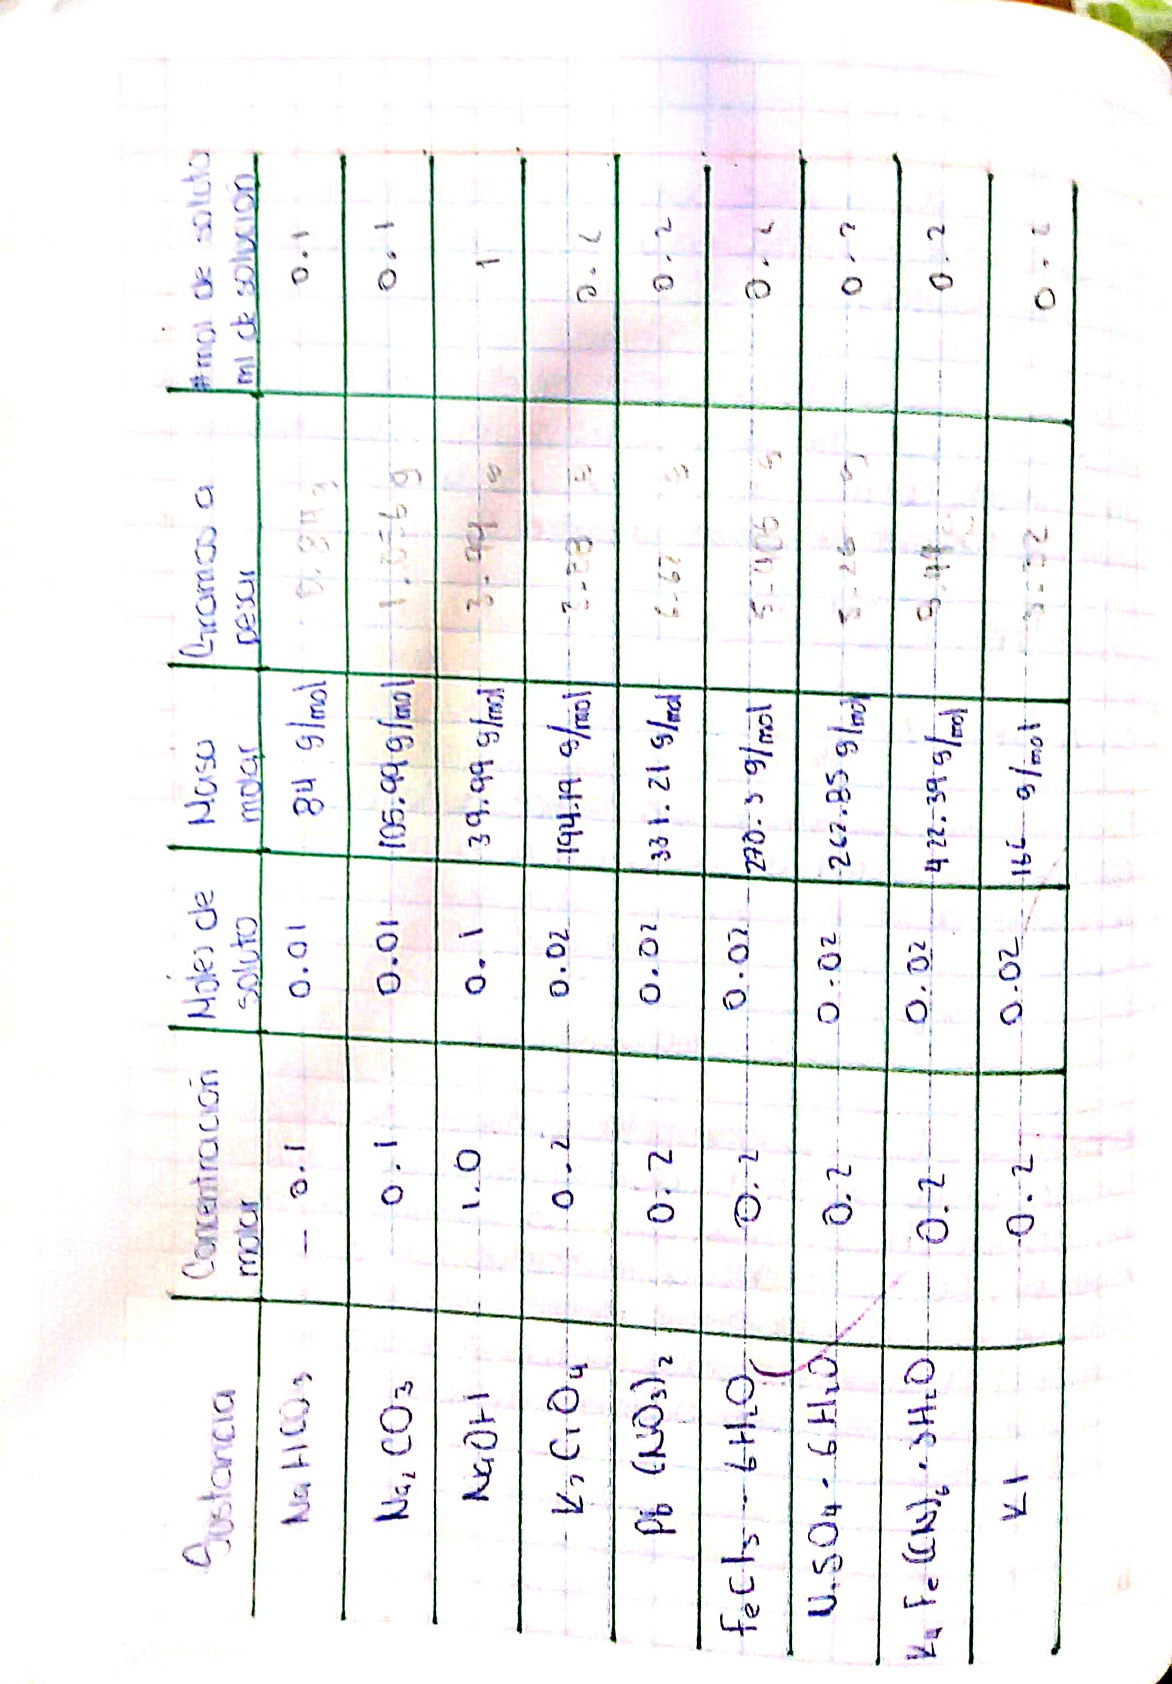 Sustancia Concentración molar Móles de soluto Masa molar Gramos a pesar #mol de soluto ml de solucion
NaHCO3 - 0.1 0.01 84 g/mol 0.84 g 0.1
Na2CO3 0.1 0.01 105.99 g/mol 1.056 g 0.1
NaOH 1.0 0.1 39.99 g/mol 3.99 g 1
K2CrO4 0.2 0.02 194.19 g/mol 3.88 g 0.2
Pb (NO3)2 0.2 0.02 331.21 g/mol 6.62 g 0.2
FeCl3 - 6H2O 0.2 0.02 270.3 g/mol 5.406 g 0.2
SO4 · 6H2O 0.2 0.02 262.85 g/mol 5.26 g 0.2
K4 Fe (CN)6 · 3H2O 0.2 0.02 422.39 g/mol 0.2
KI 0.2 0.02 166 g/mol 3.32 0.2